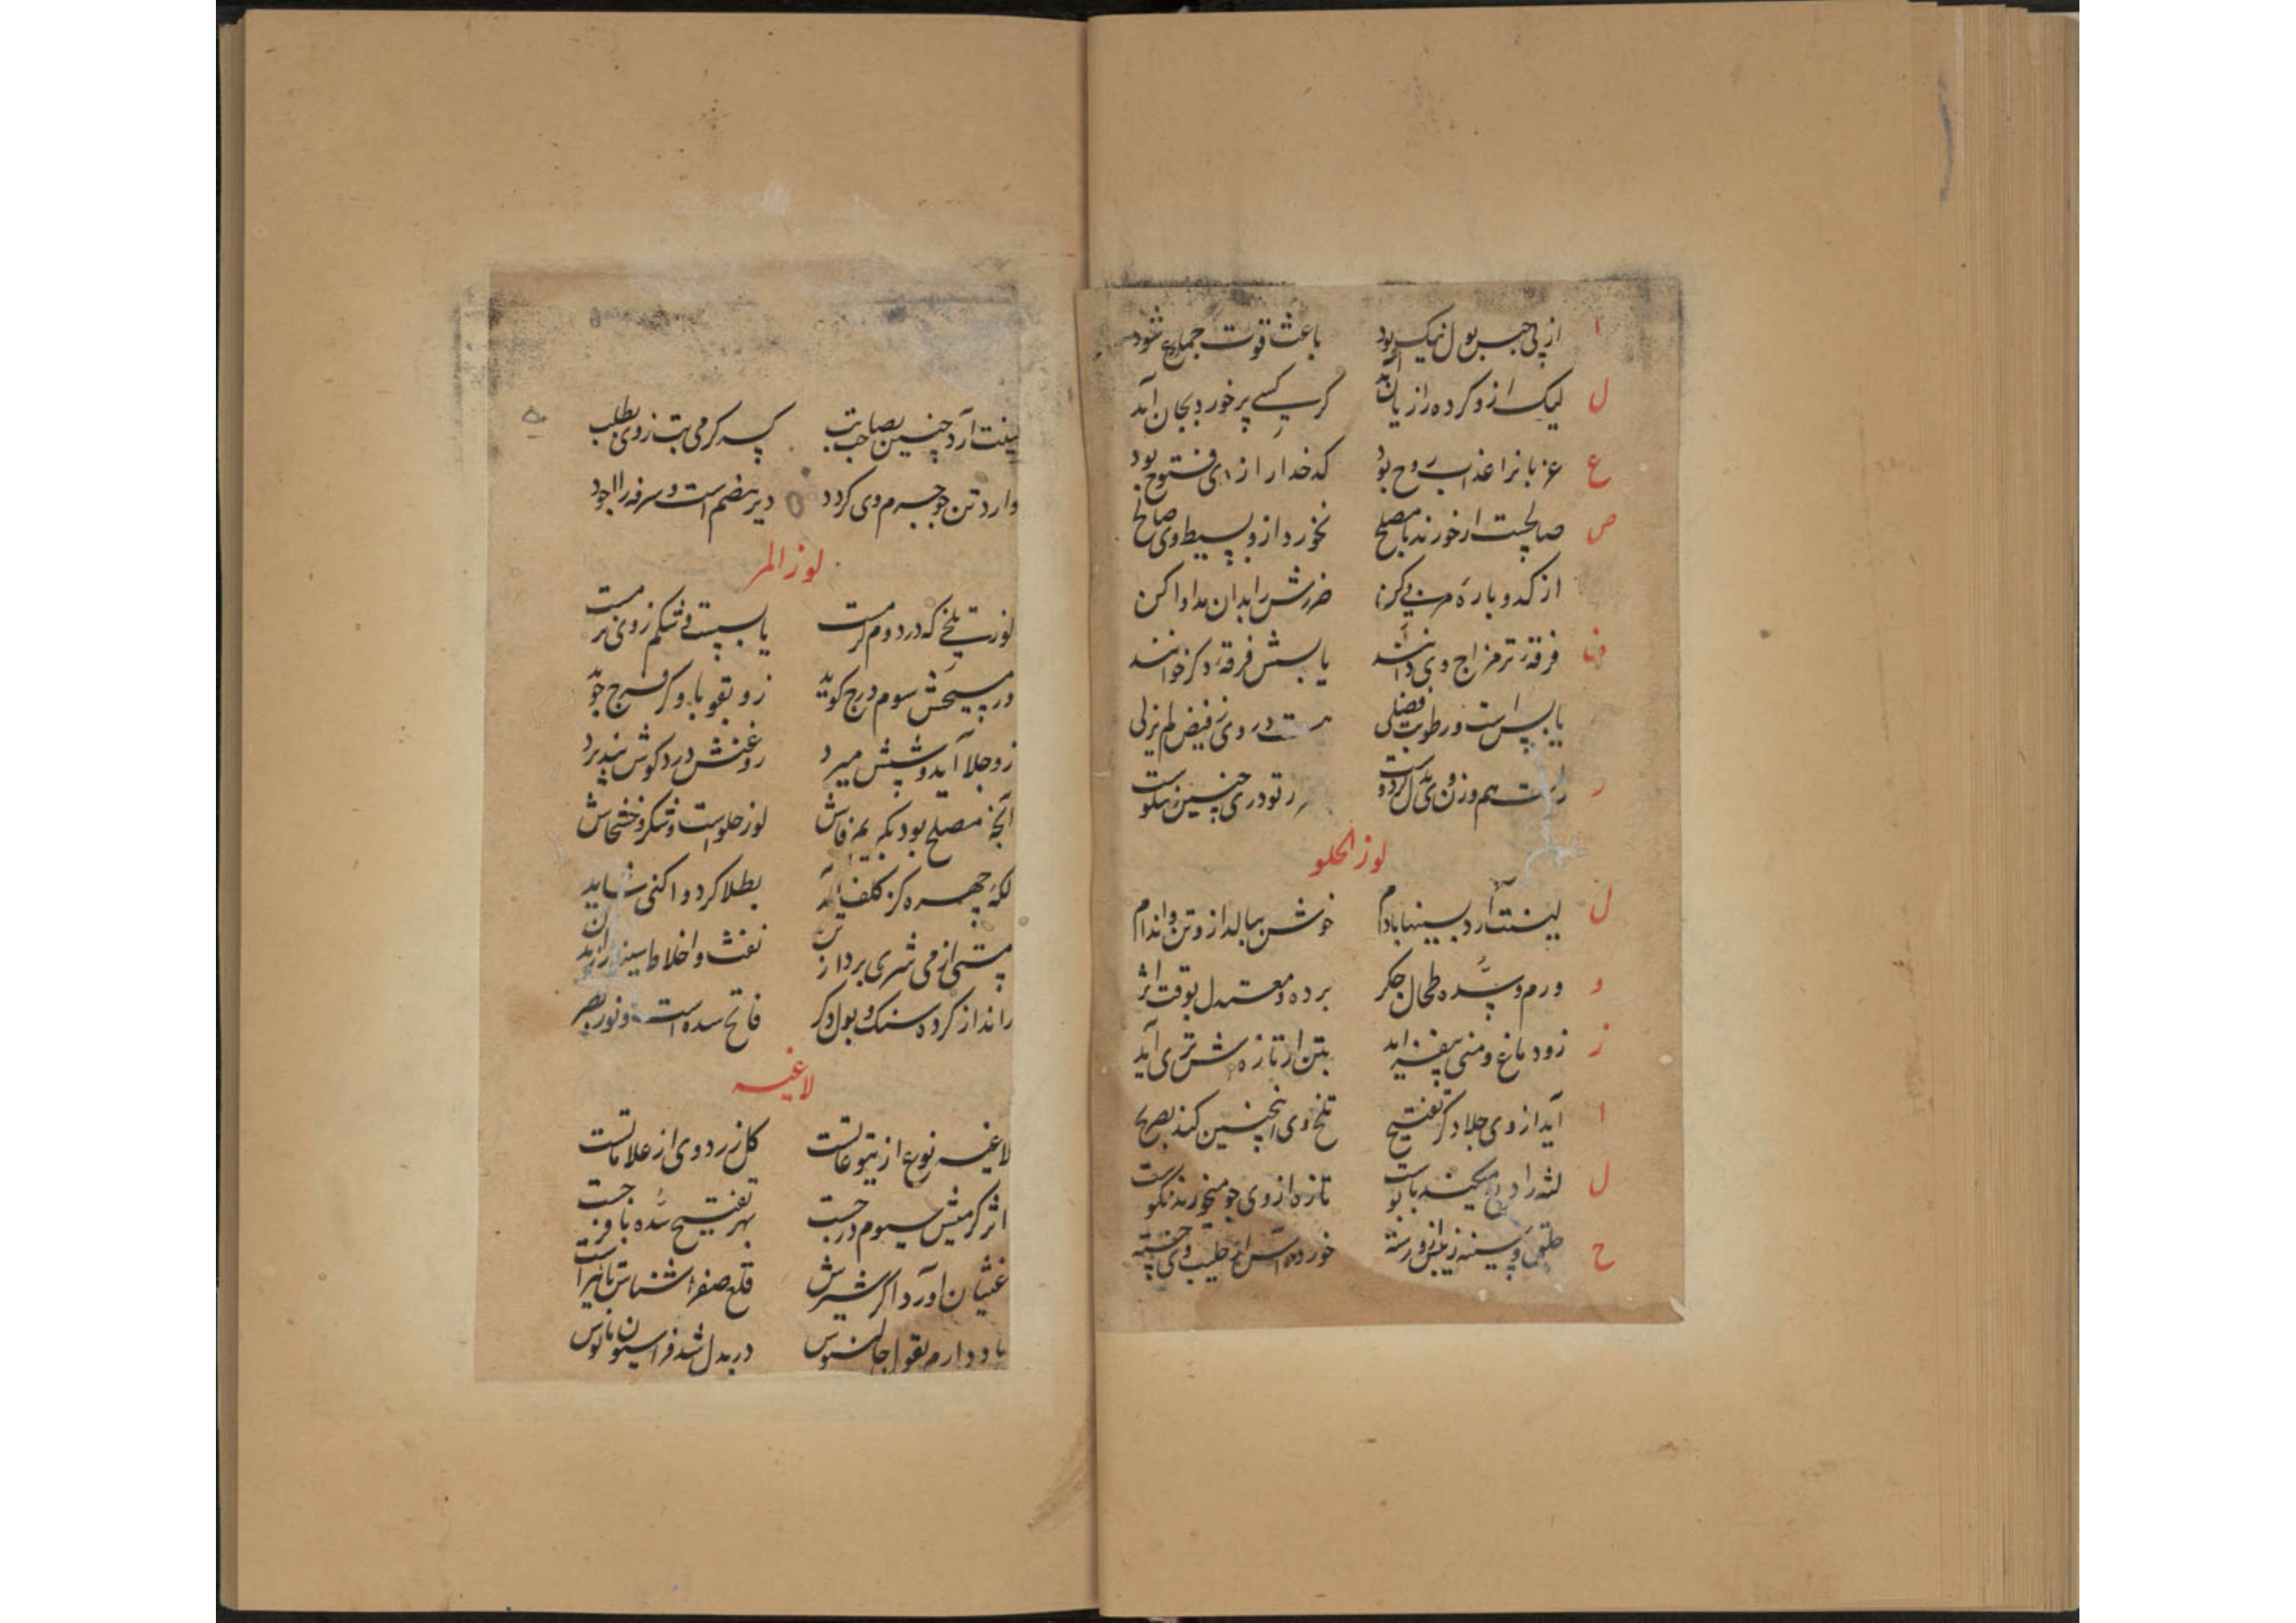 ا از پی حبس بول نیک بود باعث قوت جماع شود
ل لیک ازو کرده را زیان آید گر کسی پر خورد بجان آید
ع عزبانرا عذاب روح بود کدخدا را ازو فتوح بود
ص صالحست ار خورند با مصلح نخورد ازو بسیط وی صالح
از کدو باره مربی کن ضررش را بدان مداوا کن
ف فرقهٔ تر مزاج وی دانند یابسش فرقهٔ دگر خوانند
یابس است و رطوبت فضلی هست در وی ز فیض لم یزلی
ر راست هم وزن وی بدل کردست تودری چنین نیکوست
لوز الحلو
ل لینت آرد بسینها بادام خوش ببالد ازو تن و اندام
و ورم و سدهٔ طحال جگر برده و معتدل بوقت اثر
ز زو دماغ و منی بیفزاید بتن ار تازه‌ش تری آید
ا آید از وی جلا دگر تفتیح تلخ وی اینچنین کند بصریح
ل لثه را دبغ میکند با پوست تازه از وی چو میخورند نکوست
ح حلق و سینه ز بلس ازو رسته خورده‌اش از حلیب وی خسته
لینت آرد چنین بصاحب تب پس گرمی تب ز وی بطلب
وارد تن چو جرم وی گردد دیر هضم است و سرفه را
لوز المر
لوز تلخی که در دوم گرمست یابسست و شکم ز وی نرمست
ور مسیحش سوم درج گوید زو بقوبا و گر فرج جوید
زو جلا آید و شپش میرد روغنش درد گوش نپذیرد
آنچه مصلح بود بگویم فاش لوز حلوست و شکر و خشخاش
لکهٔ چهره کز کلف آید بطلا گر دوا کنی شاید
مستی از می شری بردارد نفث و اخلاط سینه را زاید آن
راند از گرده سنگ و بول دگر فاتح سده است و نور بصر
لاغیه
لاغیه نوع از یتوعاتست گل زرد وی از علاماتست
اثر گرمیش سیوم درجست بهر تفتیح سده با فرجست
غثیان آورد اگر شیرش قلع صفرا شناس تاثیرات
یاد دارم بقول جالینوس در بدل شد فراسیون مانوس